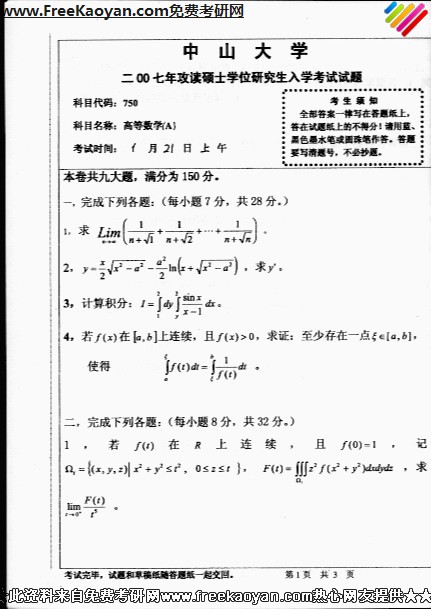 www.FreeKaoyan.com免费考研网
中 山 大 学
二00七年攻读硕士学位研究生入学考试试题
科目代码：750
科目名称：高等数学(A)
考试时间： 1 月 21 日 上 午
考 生 须 知
全部答案一律写在答题纸上，
答在试题纸上的不得分！请用蓝、
黑色墨水笔或圆珠笔作答。答题
要写清题号，不必抄题。
本卷共九大题，满分为 150 分。
一，完成下列各题：（每小题 7 分，共 28 分。）
1，求 Lim_{n→∞} (1/(n+√1) + 1/(n+√2) + ⋯ + 1/(n+√n)) 。
2，y = x/2 √(x²−a²) − a²/2 ln(x+√(x²−a²))，求 y'。
3，计算积分：I = ∫_1^2 dy ∫_y^2 sin x/(x−1) dx。
4，若 f(x) 在 [a,b] 上连续，且 f(x)>0，求证：至少存在一点 ξ∈[a,b]，
使得 ∫_a^ξ f(t)dt = ∫_ξ^b 1/f(t) dt 。
二，完成下列各题：（每小题 8 分，共 32 分。）
1，若 f(t) 在 R 上连续，且 f(0)=1，记
Ω_t = {(x,y,z)| x²+y²≤t², 0≤z≤t}，F(t) = ∭_{Ω_t} z² f(x²+y²)dxdydz，求
lim_{t→0⁺} F(t)/t⁵ 。
考试完毕，试题和草稿纸随答题纸一起交回。 第 1 页 共 3 页
此资料来自免费考研网www.freekaoyan.com热心网友提供★★